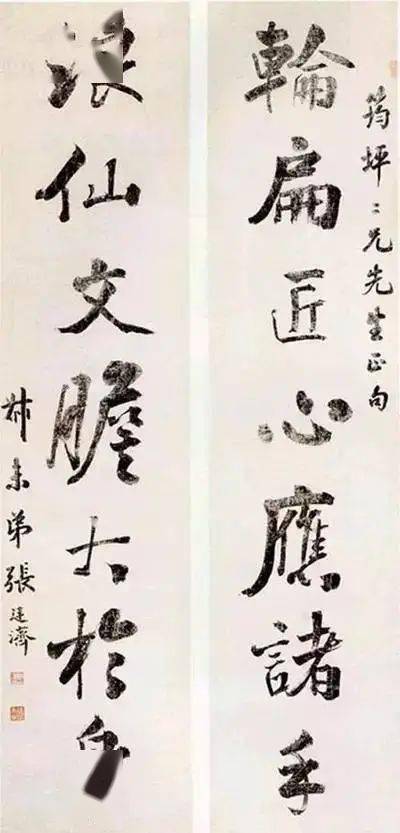 筠坪二兄先生正句
輪扁匠心應諸手
浪仙文膽大於
叔未弟張廷濟